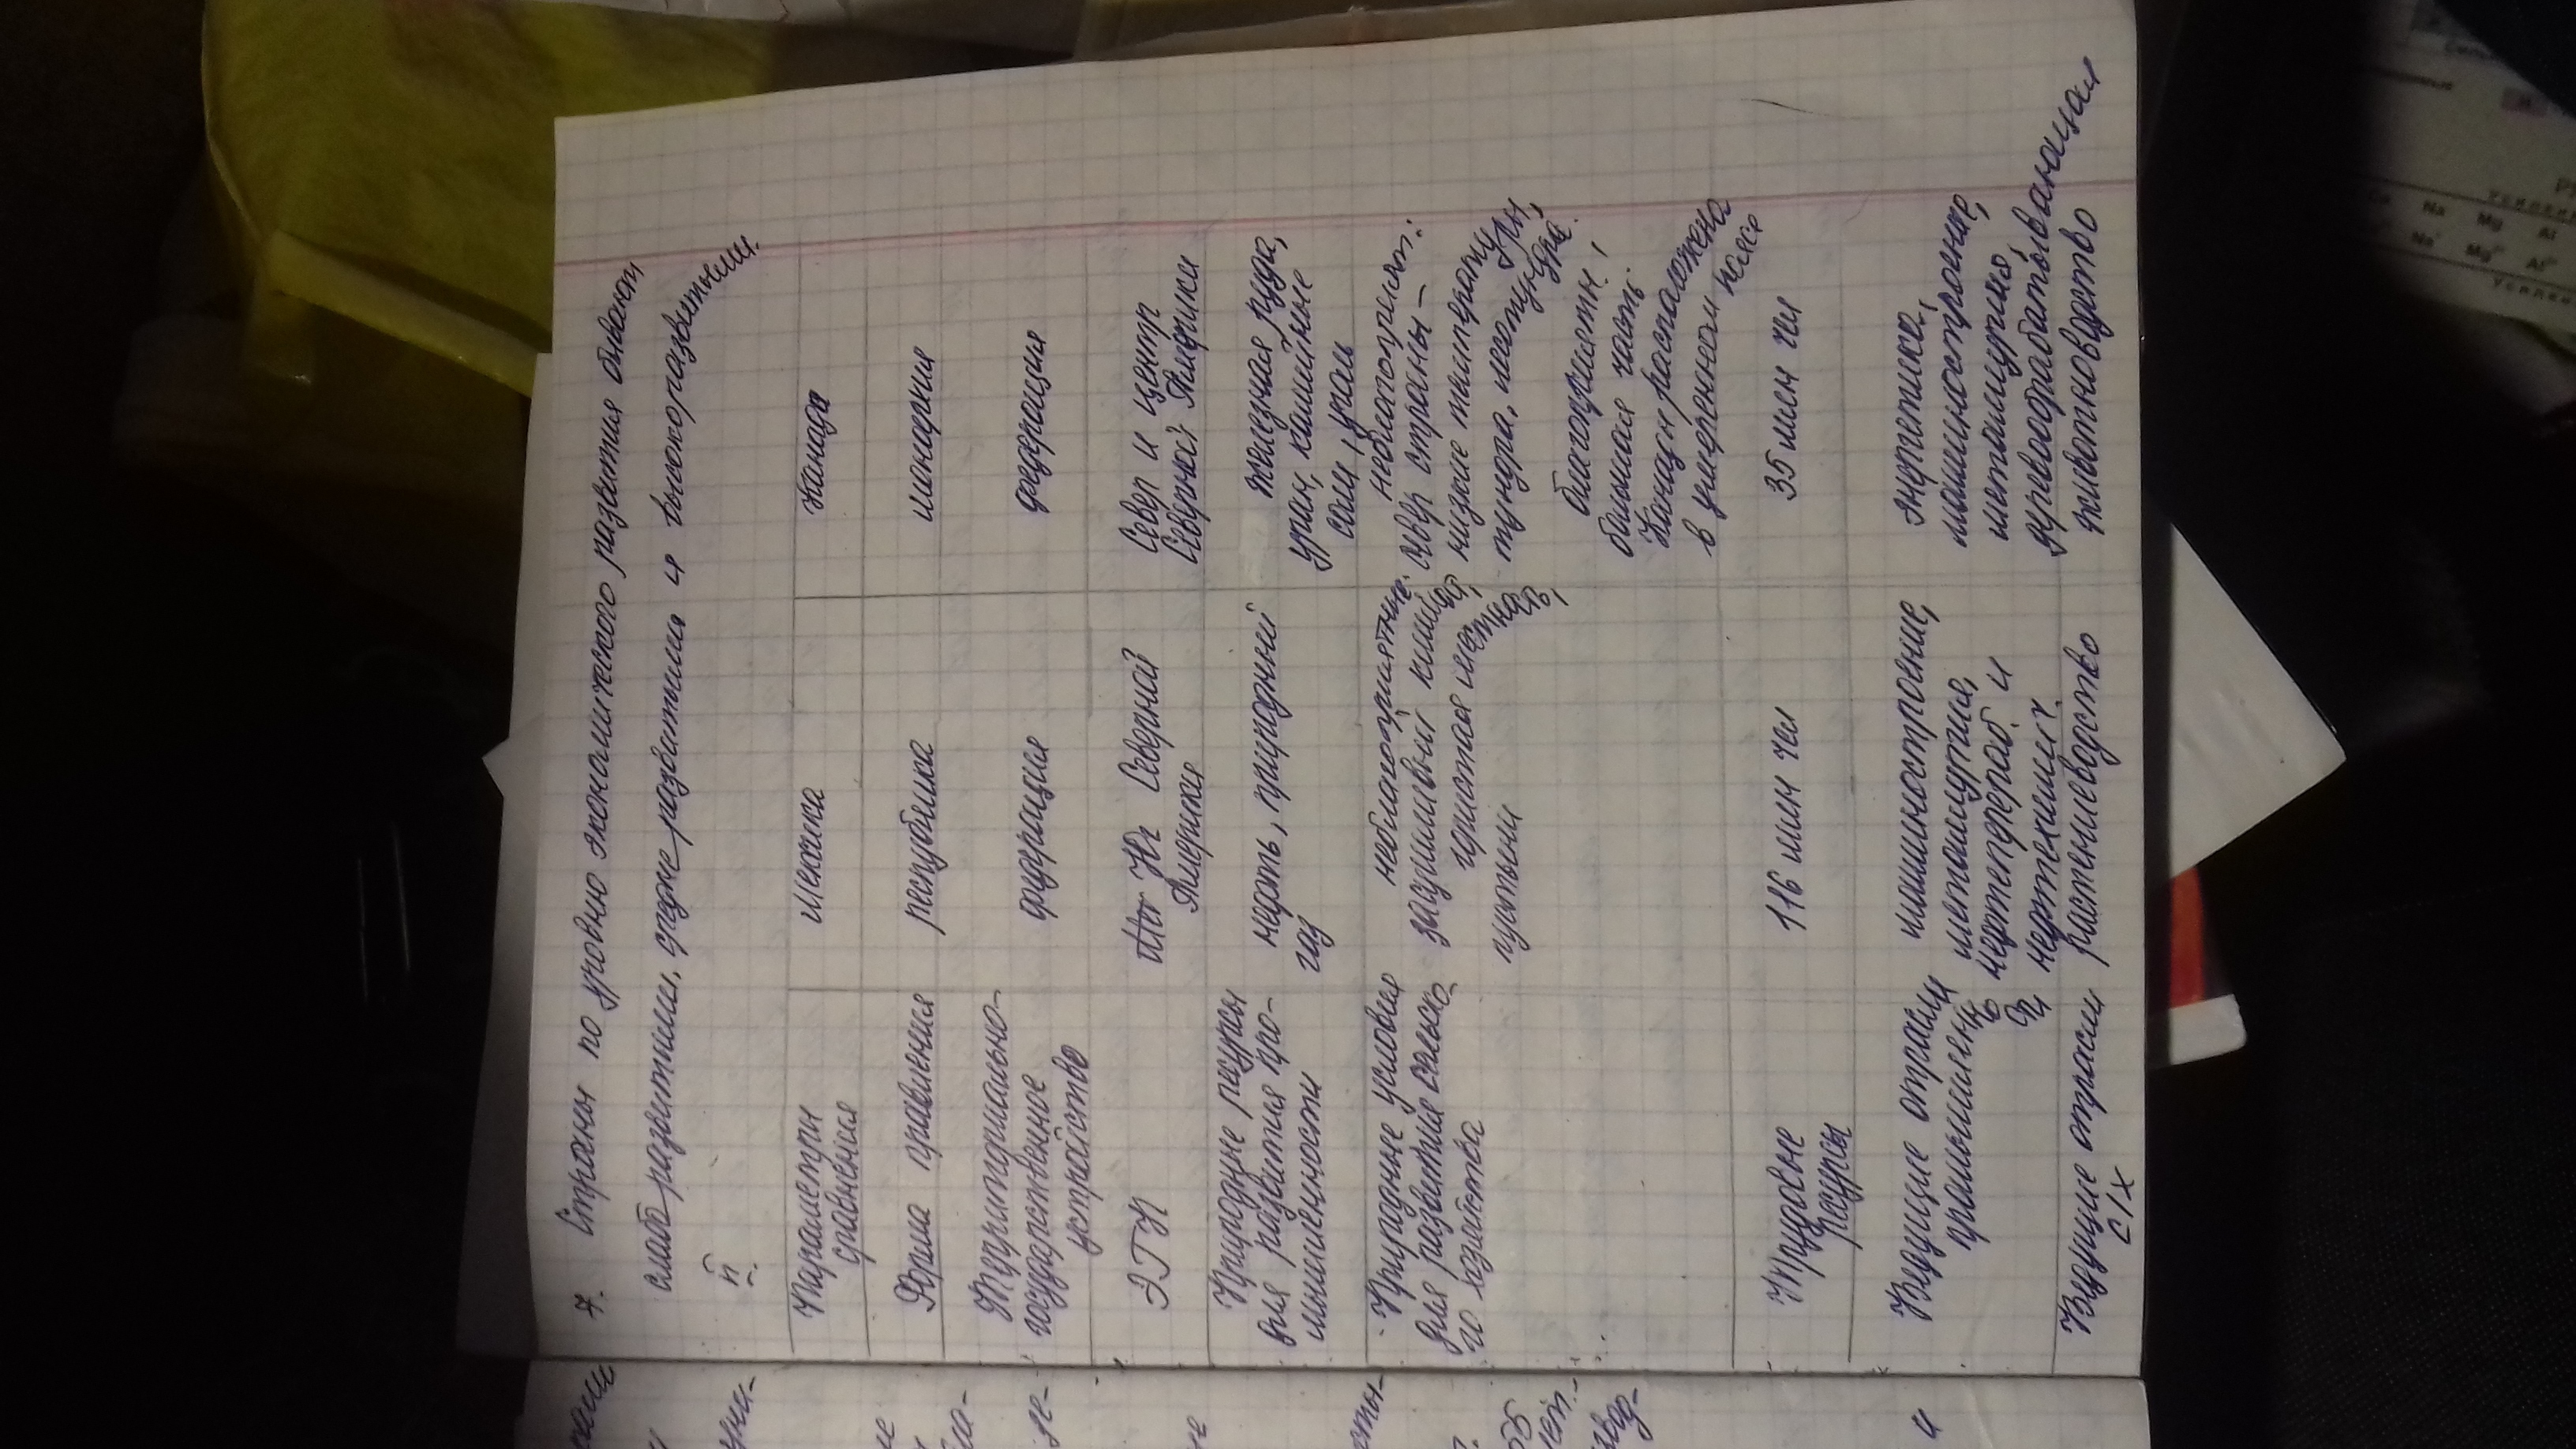 7. Страны по уровню экономического развития бывают
слабо развитыми, средне развитыми и высокоразвитыми.
п.
Параметры сравнения
Мексика
Канада
Форма правления
республика
монархия
Территориально-
государственное
устройство
федерация
федерация
ЭГП
Юг Северной
Америки
Север и центр
Северной Америки
Природные ресурсы
для развития про-
мышленности
нефть, природный
газ
железная руда,
уран, калийные
соли, уголь
Природные условия
для развития сельско-
го хозяйства
неблагоприятные:
засушливый климат,
гористая местность,
пустыни
неблагоприят.:
север страны –
низкие температуры,
тундра, лесотундра.
благоприятн.:
большая часть
Канады расположена
в умеренном поясе
Трудовые
ресурсы
116 млн чел
35 млн чел
Ведущие отрасли
промышленности
машиностроение,
металлургия,
нефтеперераб. и
нефтехимич.
энергетика,
машиностроение,
металлургия,
деревообрабатывающая
Ведущие отрасли
с/х
растениеводство
животноводство